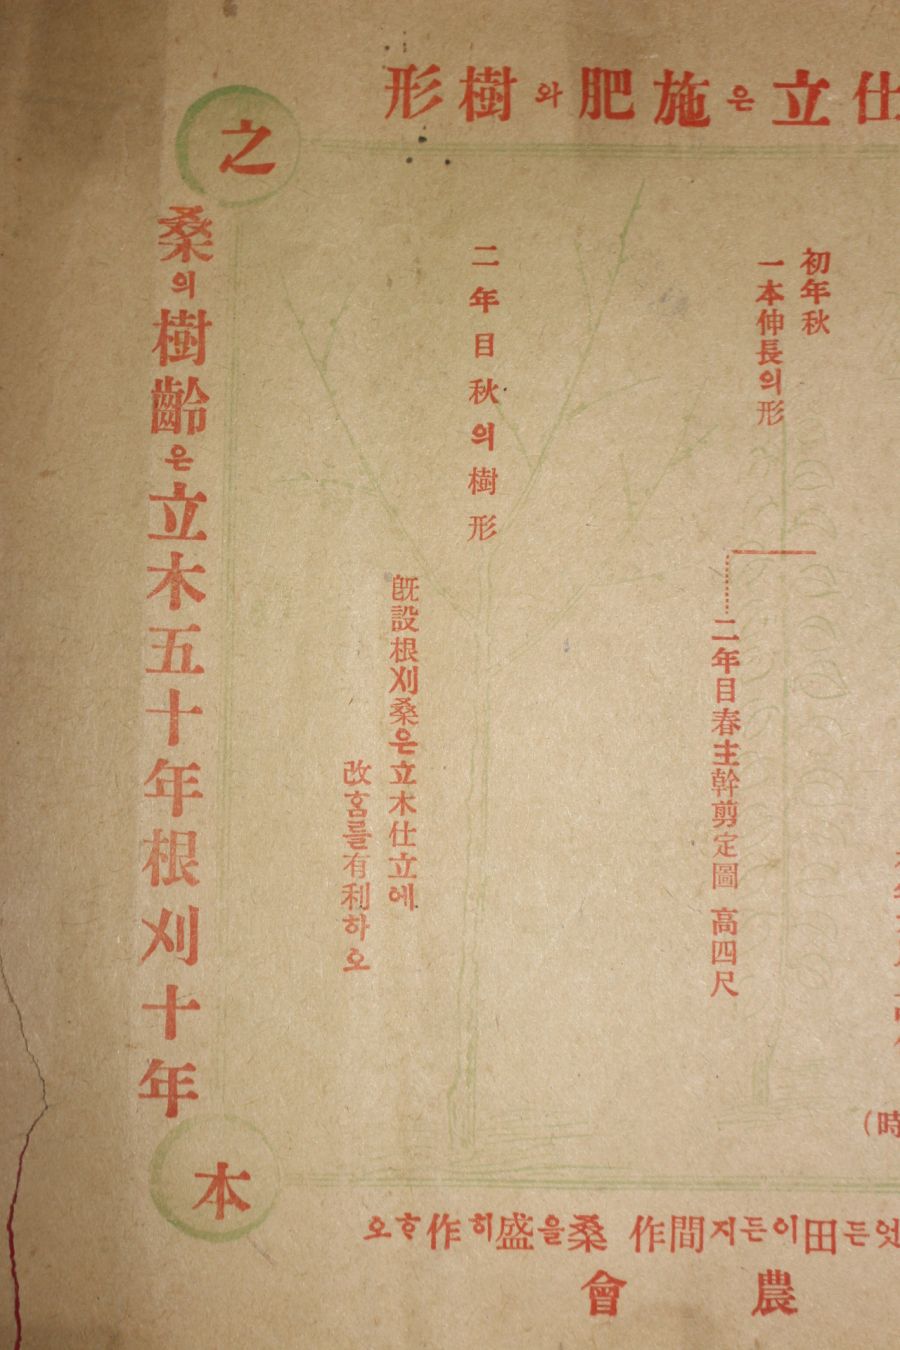 仕立은施肥와樹形
初年秋
一本伸長의形
二年目春主幹剪定圖 高四尺
二年目秋의樹形
旣設根刈桑은立木仕立에
改홈를有利하오
之
桑의樹齡은立木五十年根刈十年
本
(時
든田이든지間作 桑을盛히作ᄒᆞ오
農會